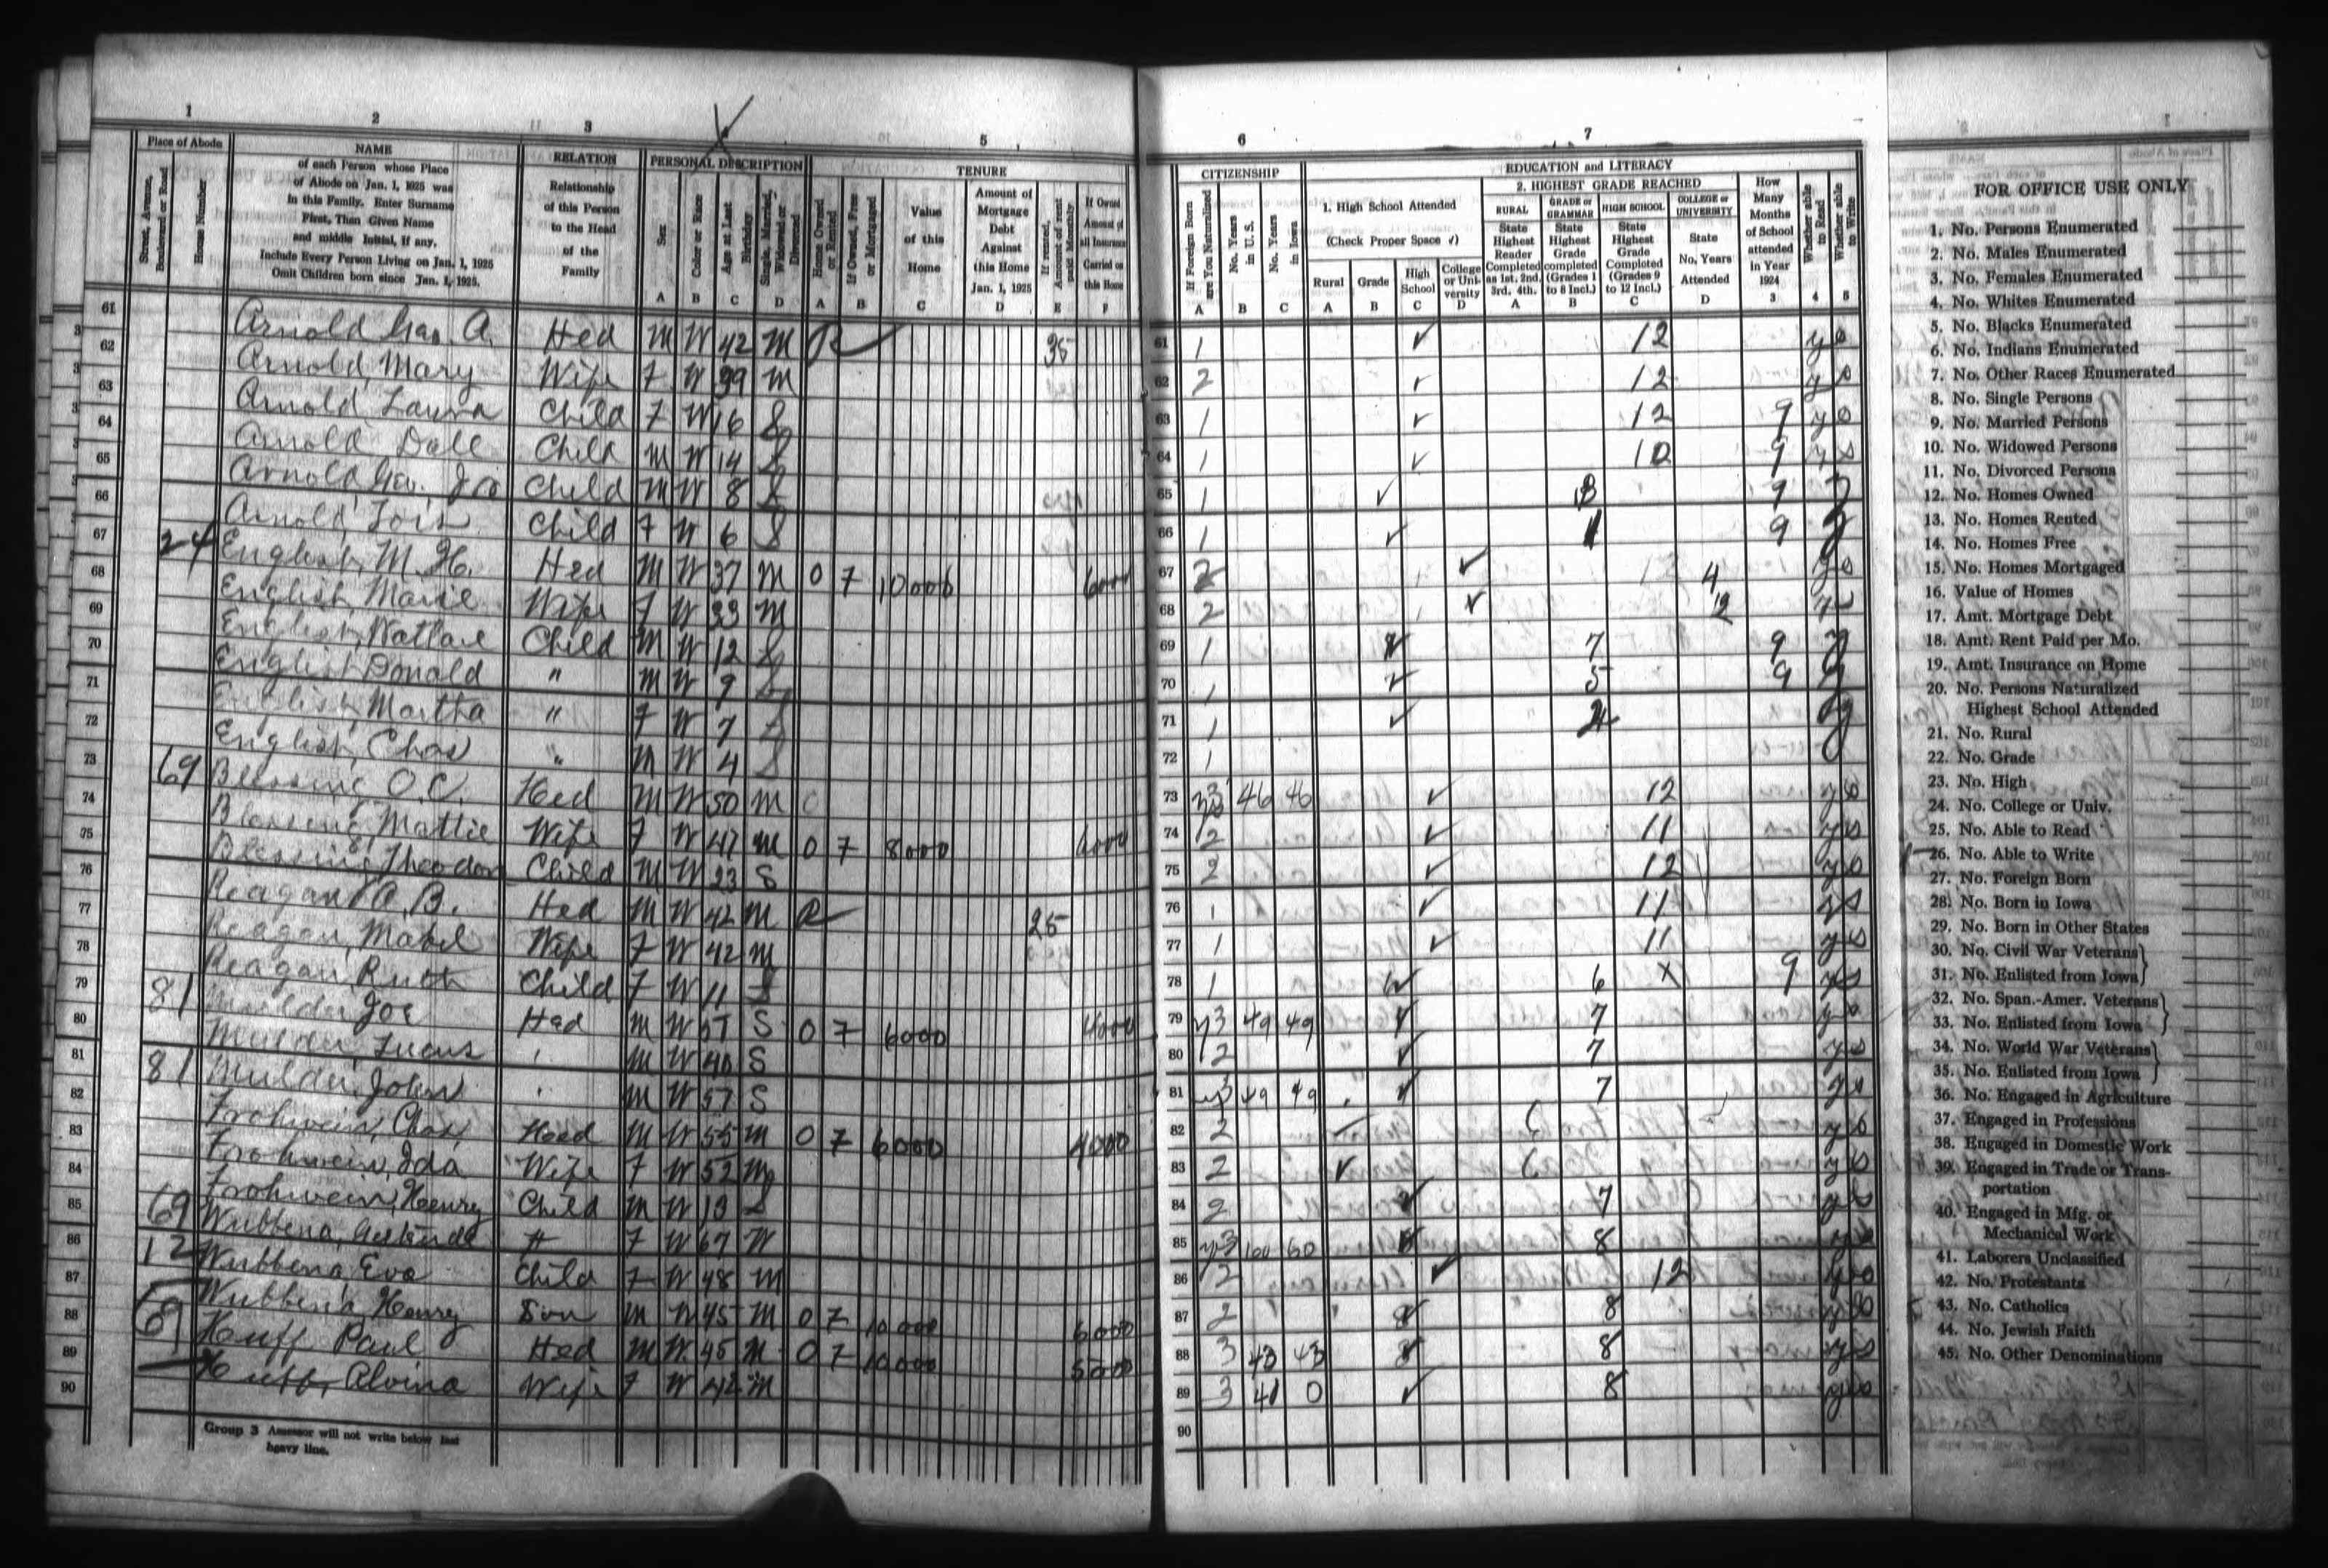 1 2 3 5 6 7
Place of Abode
Street, Avenue, Boulevard or Road
House Number
NAME
of each Person whose Place
of Abode on Jan. 1, 1925 was
in this Family. Enter Surname
First, Then Given Name
and middle Initial, if any.
Include Every Person Living on Jan. 1, 1925
Omit Children born since Jan. 1, 1925.
RELATION
Relationship
of this Person
to the Head
of the
Family
PERSONAL DESCRIPTION
Sex A
Color or Race B
Age at Last Birthday C
Single, Married, Widowed or Divorced D
TENURE
Home Owned or Rented A
If Owned, Free or Mortgaged B
Value of this Home C
Amount of Mortgage Debt Against this Home Jan. 1, 1925 D
If rented, Amount of rent paid Monthly E
If Owned Amount of all Insurance Carried on this Home F
CITIZENSHIP
If Foreign Born are You Naturalized A
No. Years in U. S. B
No. Years in Iowa C
EDUCATION and LITERACY
1. High School Attended
(Check Proper Space ✓)
Rural A
Grade B
High School C
College or University D
2. HIGHEST GRADE REACHED
RURAL State Highest Reader Completed as 1st. 2nd. 3rd. 4th. A
GRADE or GRAMMAR State Highest Grade completed (Grades 1 to 8 Incl.) B
HIGH SCHOOL State Highest Grade Completed (Grades 9 to 12 Incl.) C
COLLEGE or UNIVERSITY State No. Years Attended D
How Many Months of School attended in Year 1924 3
Whether able to Read 4
Whether able to Write 5
61 Arnold Geo. A. Hed M W 42 M R 35 1 ✓ 12 yes
62 Arnold Mary Wife F W 39 M 2 ✓ 12 yes
63 Arnold Laura Child F W 16 S 1 ✓ 12 9 yes
64 Arnold Dall Child M W 14 S 1 ✓ 10 9 yes
65 Arnold Geo. Jr Child M W 8 S 1 ✓ 3 9 y
66 Arnold, Lois Child F W 6 S 1 ✓ 1 9 y
67 24 English, M. H. Hed M W 37 M O F 10000 6000 2 ✓ 4 yes
68 English, Marie Wife F W 33 M 2 ✓ 2 yes
69 English, Wallace Child M W 12 S 1 ✓ 7 9 y
70 English Donald " M W 9 S 1 ✓ 5 9 y
71 English, Martha " F W 7 S 1 ✓ 2 y
72 English, Chas " M W 4 S 1
73 69 Blessing O. C. Hed M W 50 M 3 46 46 ✓ 12 yes
74 Blessing, Mattie Wife F W 47 M O F 8000 6000 2 ✓ 11 yes
75 Blessing, Theodore Child M W 23 S 2 ✓ 12 yes
76 Reagan, A. B. Hed M W 42 M R 25 1 ✓ 11 yes
77 Reagan, Mabel Wife F W 42 M 1 ✓ 11 yes
78 Reagan, Ruth Child F W 11 S 1 ✓ 6 X 9 yes
79 81 Mulder, Joe Hed M W 57 S O F 6000 4000 y3 49 49 ✓ 7 yes
80 Mulder, Lucus " M W 40 S 2 ✓ 7 yes
81 81 Mulder, John " M W 57 S y3 49 49 ✓ 7 yes
82 Frohwein, Chas, Heed M W 55 M O F 6000 4000 2 ✓ yes
83 Frohwein, Ida Wife F W 52 M 2 ✓ yes
84 Frohwein, Henry Child M W 13 S 2 ✓ 7 yes
85 69 Wubbena, Gertrude H F W 67 W y3 60 60 ✓ 8 yes
86 12 Wubbena, Eva Child F W 48 M 2 ✓ 12 yes
87 Wubbena, Henry Son M W 45 M O F 10000 6000 2 ✓ 8 yes
88 69 Huff Paul Hed M W 45 M O F 10000 5000 3 43 43 ✓ 8 yes
89 Huff, Alvina Wife F W 42 M 3 41 0 ✓ 8 yes
90
Group 3 Assessor will not write below last
heavy line.
FOR OFFICE USE ONLY
1. No. Persons Enumerated
2. No. Males Enumerated
3. No. Females Enumerated
4. No. Whites Enumerated
5. No. Blacks Enumerated
6. No. Indians Enumerated
7. No. Other Races Enumerated
8. No. Single Persons
9. No. Married Persons
10. No. Widowed Persons
11. No. Divorced Persons
12. No. Homes Owned
13. No. Homes Rented
14. No. Homes Free
15. No. Homes Mortgaged
16. Value of Homes
17. Amt. Mortgage Debt
18. Amt. Rent Paid per Mo.
19. Amt. Insurance on Home
20. No. Persons Naturalized
Highest School Attended
21. No. Rural
22. No. Grade
23. No. High
24. No. College or Univ.
25. No. Able to Read
26. No. Able to Write
27. No. Foreign Born
28. No. Born in Iowa
29. No. Born in Other States
30. No. Civil War Veterans
31. No. Enlisted from Iowa
32. No. Span.-Amer. Veterans
33. No. Enlisted from Iowa
34. No. World War Veterans
35. No. Enlisted from Iowa
36. No. Engaged in Agriculture
37. Engaged in Professions
38. Engaged in Domestic Work
39. Engaged in Trade or Trans-
portation
40. Engaged in Mfg. or
Mechanical Work
41. Laborers Unclassified
42. No. Protestants
43. No. Catholics
44. No. Jewish Faith
45. No. Other Denominations